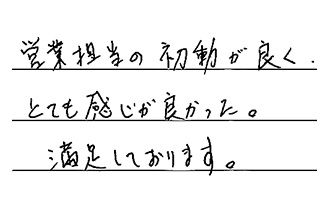 営業担当の初動が良く、
とても感じが良かった。
満足しております。